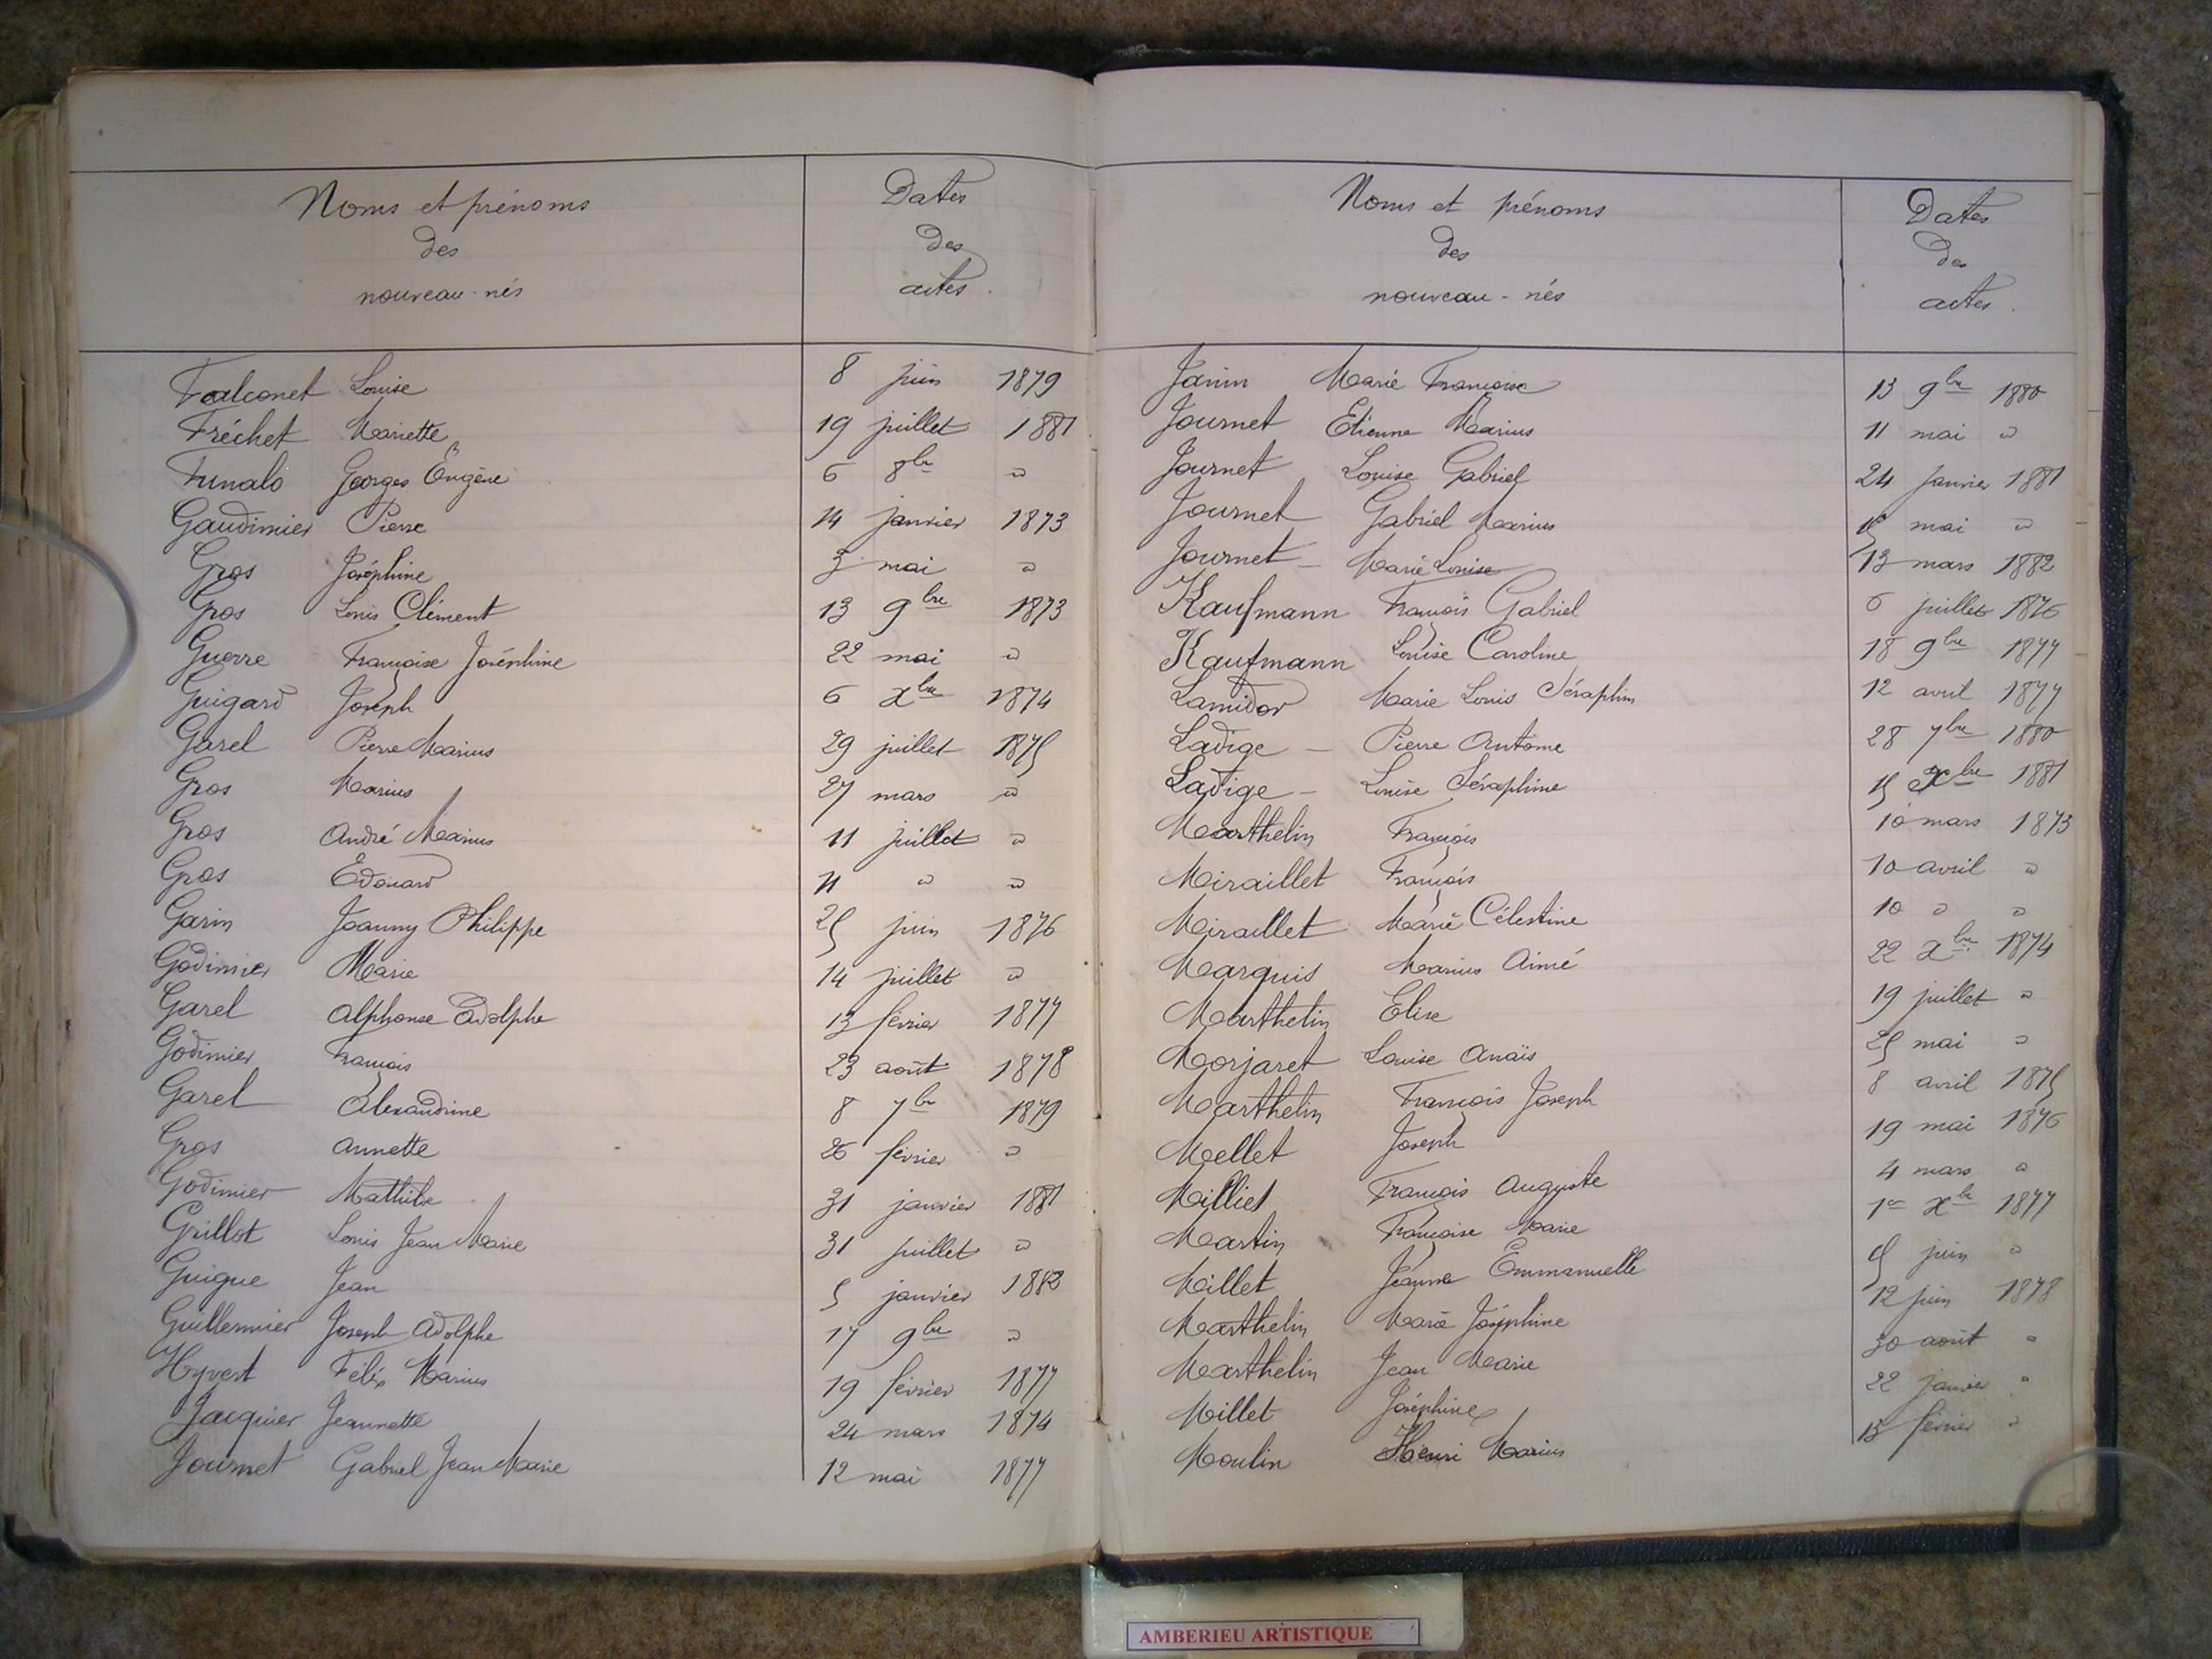 Noms et prénoms
des
nouveau-nés
Dates
des
actes.
Falconet Louise 8 juin 1879
Fréchet Mariette 19 juillet 1881
Funalo Georges Eugène 6 8bre "
Gaudimier Pierre 14 janvier 1873
Gros Joséphine 3 mai "
Gros Louis Clément 13 9bre 1873
Guerre Françoise Joséphine 22 mai "
Guigard Joseph 6 xbre 1874
Garel Pierre Marius 29 juillet 1875
Gros Marius 27 mars "
Gros André Marius 11 juillet "
Gros Edouard 11 " "
Garin Joanny Philippe 25 juin 1876
Godimier Marie 14 juillet "
Garel Alphonse Adolphe 13 février 1877
Godimier François 23 août 1878
Garel Alexandrine 8 7bre 1879
Gros Annette 26 février "
Godimier Mathilde 31 janvier 1881
Grillot Louis Jean Marie 31 juillet "
Guigue Jean 5 janvier 1882
Guillermier Joseph Adolphe 17 9bre "
Hyvert Félix Marius 19 février 1877
Jacquier Jeannette 24 mars 1874
Journet Gabriel Jean Marie 12 mai 1877
Noms et prénoms
des
nouveau-nés
Dates
des
actes.
Janin Marie Françoise 13 9bre 1880
Journet Etienne Marius 11 mai "
Journet Louise Gabriel 24 janvier 1881
Journet Gabriel Marius 15 mai "
Journet - Marie Louise 13 mars 1882
Kaufmann François Gabriel 6 juillet 1876
Kaufmann Louise Caroline 18 9bre 1877
Lamidor Marie Louis Séraphin 12 avril 1877
Ladige - Pierre Antoine 28 7bre 1880
Ladige - Louise Séraphine 15 xbre 1881
Marthelin François 10 mars 1873
Miraillet François 10 avril "
Miraillet Marie Célestine 10 " "
Marquis Marius Aimé 22 xbre 1874
Marthelin Elise 19 juillet "
Morjaret Louise Anaïs 25 mai "
Marthelin François Joseph 8 avril 1875
Mellet Joseph 19 mai 1876
Milliet François Auguste 4 mars "
Martin Françoise Marie 1er xbre 1877
Millet Jeanne Emmanuelle 5 juin "
Marthelin Marie Joséphine 12 juin 1878
Marthelin Jean Marie 30 août "
Millet Joséphine 22 janvier "
Moulin Henri Marius 13 février "
AMBERIEU ARTISTIQUE